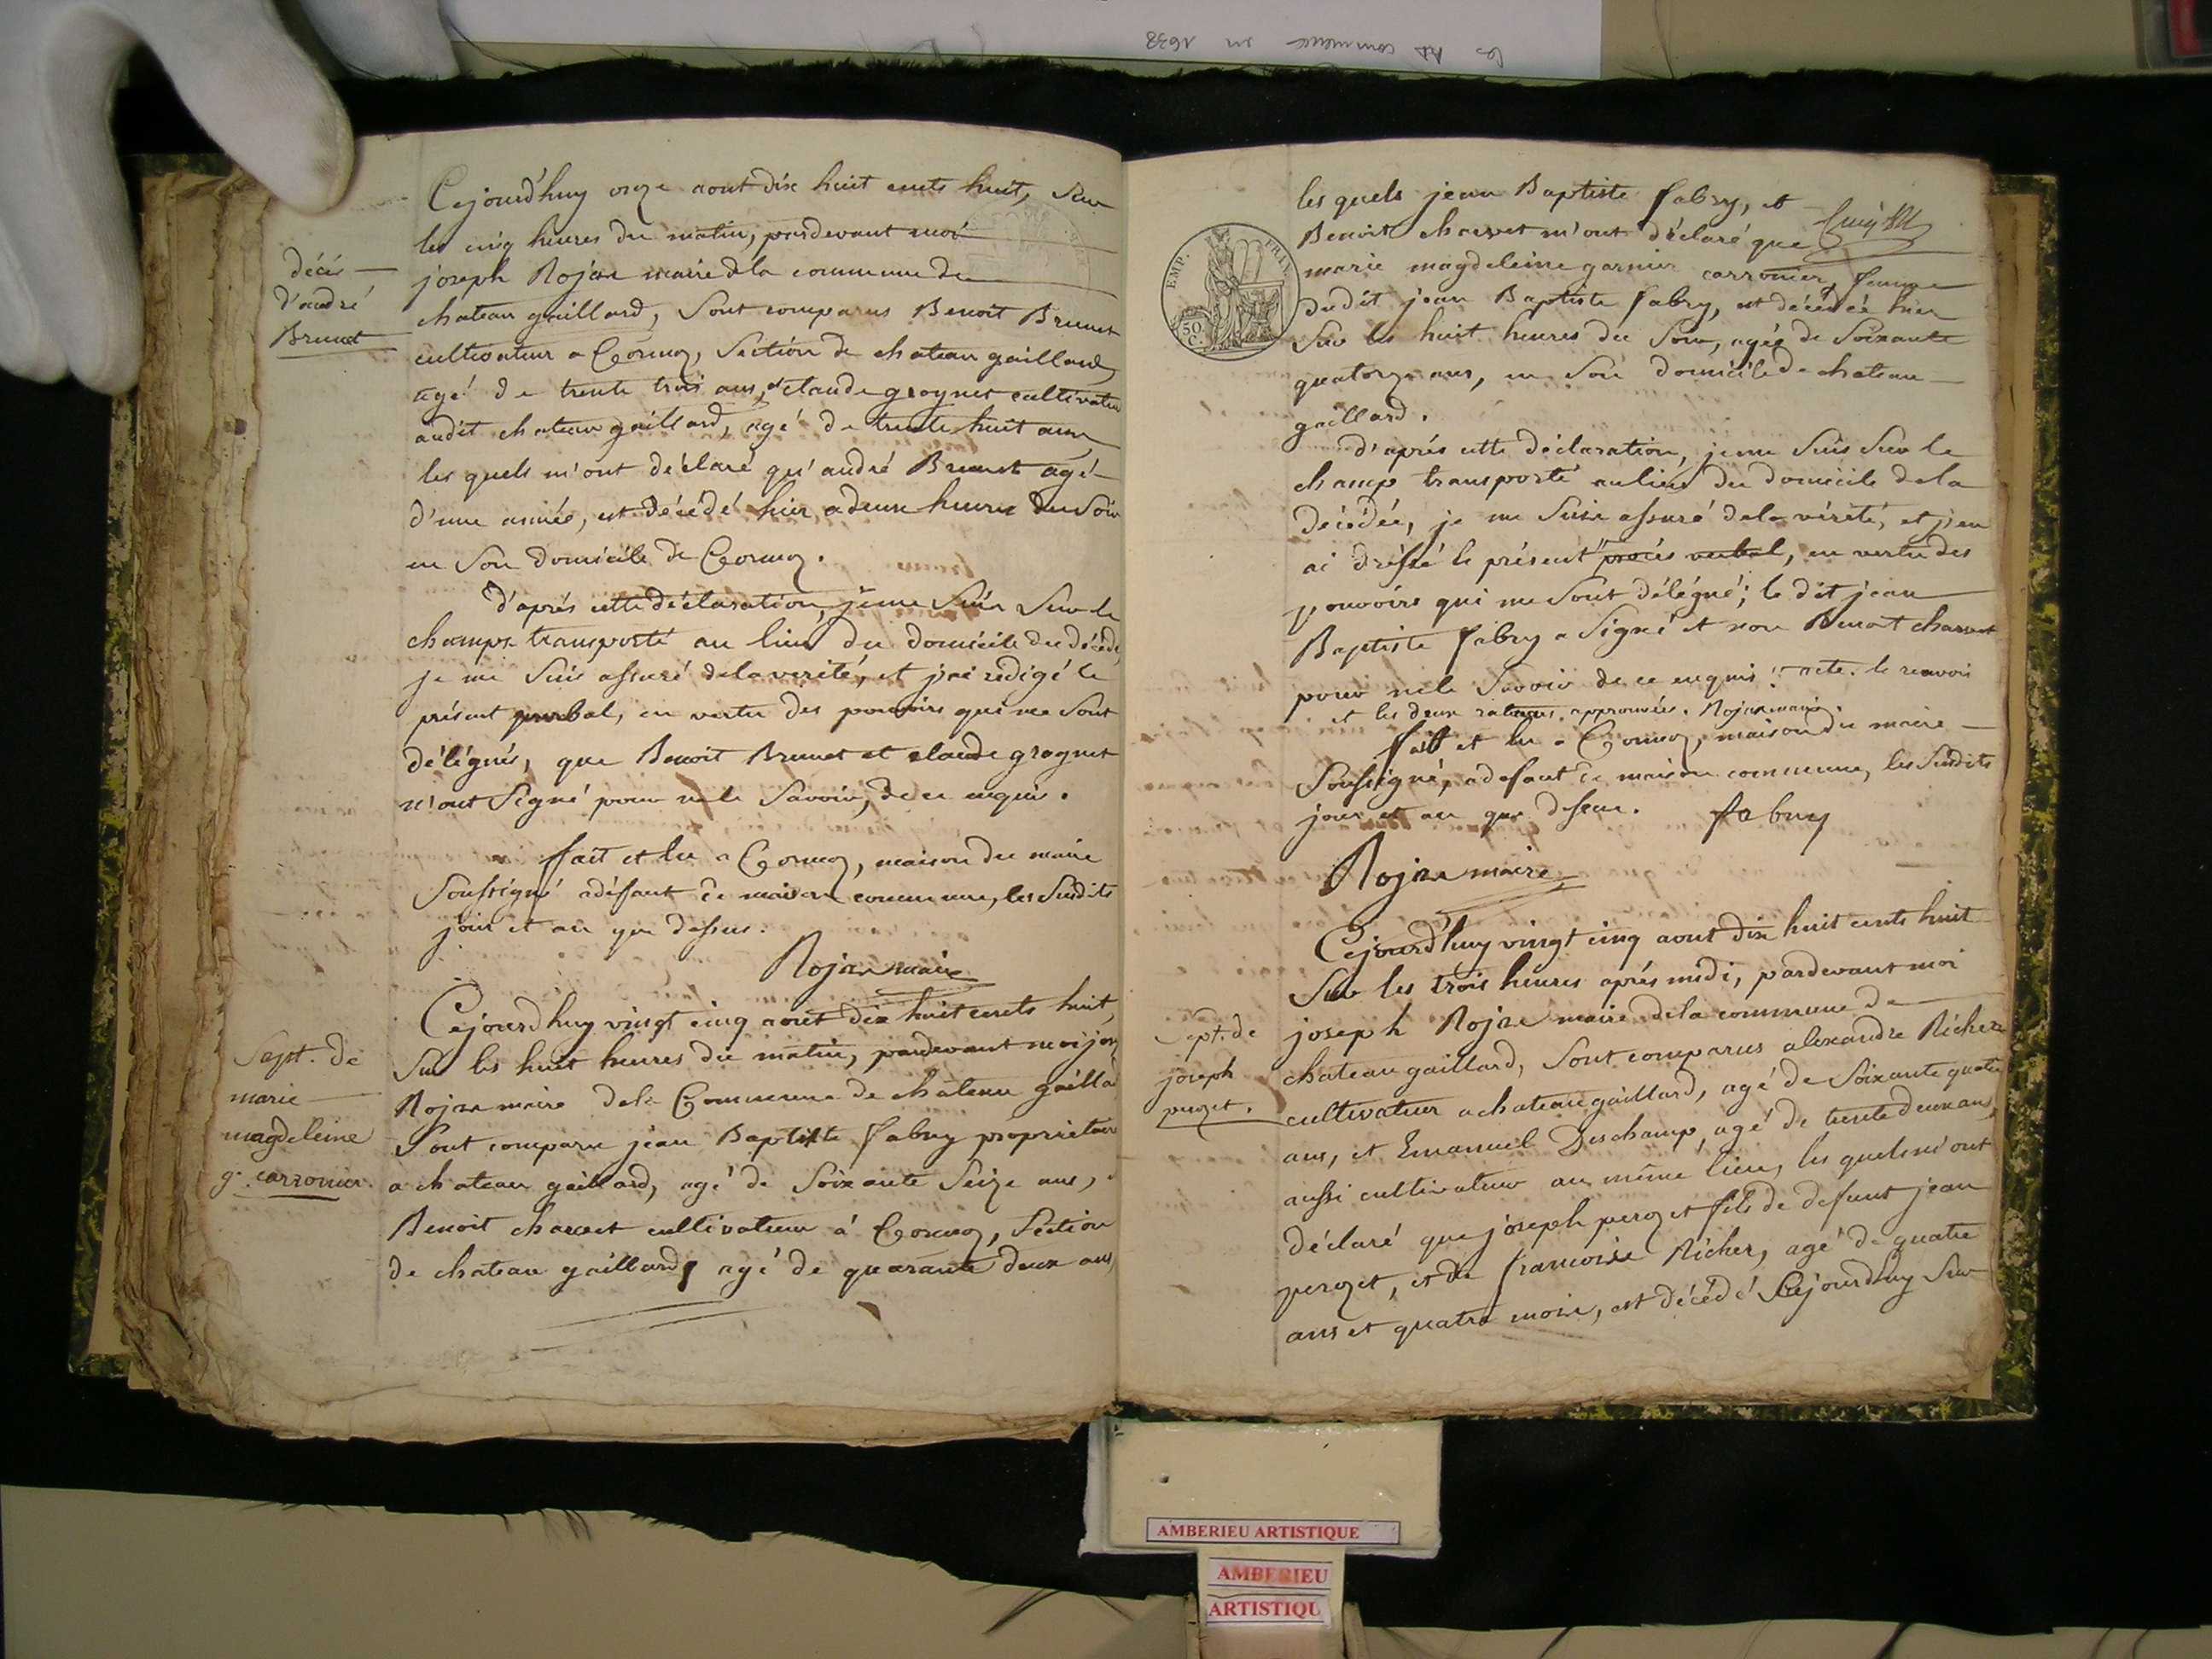 décès
d'andré
Brunet
Cejourd'huy onze aout dix huit cents huit, Sur
les cinq heures du matin, pardevant moi
joseph Rojan maire de la commune de
chateau gaillard, Sont comparus Benoit Brunet
cultivateur a Cormoz, Section de chateau gaillard
agé de trente trois ans, et claude grognet cultivateur
audit chateau gaillard, agé de trente huit ans
les quels m'ont déclaré qu'andré Brunet agé
d'une année, est décédé hier a deux heures du Soir
en Son domicile de Cormoz.
d'aprés cette déclaration, je me Suis Sur le
champs transporté au lieu du domicile du décédé
je me Suis assuré de la verité, et j'ai rédigé le
présent verbal, en vertu des pouvoirs qui me Sont
délégués, que Benoit Brunet et claude grognet
n'ont Signé pour ne le Savoir, de ce enquis.
fait et lu a Cormoz, maison du maire
Soussigné adéffaut de maison commune, les Susdits
jour et an que dessus.
Rojan maire
Sept. de
marie
magdeleine
g. carronier.
Cejourd'huy vingt cinq aout dix huit cents huit,
Sur les huit heures du matin, pardevant moi jos
Rojan maire de la Commune de chateau gailla
Sont comparu jean Baptiste fabry propriétaire
a chateau gaillard, agé de Soixante Seize ans,
Benoit charvet cultivateur á Cormoz, Section
de chateau gaillard, agé de quarante deux ans,
EMP. FRAN.
50 C.
les quels jean Baptiste fabry, et
Benoit charvet m'ont déclaré que
marie magdeleine garnier carronier, femme
dudit jean Baptiste fabry, est décédée hier
Sur les huit heures du Soir, agée de Soixante
quatorze ans, en Son domicile de chateau
gaillard.
d'aprés cette déclaration, je me Suis Sur le
champ transporté au lieu du domicile de la
décédée, je me Suis assuré de la vérité, et j'en
ai dressé le présent procés verbal, en vertu des
pouvoirs qui me Sont délégué; le dit jean
Baptiste fabry a Signé et non Benoit charvet
pour ne le Savoir de ce enquis. acte. le renvoi
et les deux ratures approuvées. Rojan maire.
fait et lu a Cormoz, maison du maire
Soussigné, a defaut de maison commune, les Susdits
jour et an que dessus. fabry
Rojan maire
Sept. de
joseph
perozet.
Cejourd'huy vingt cinq aout dix huit cents huit
Sur les trois heures aprés midi, pardevant moi
joseph Rojan maire de la commune de
chateau gaillard, Sont comparus alexandre Richer
cultivateur a chateau gaillard, agé de Soixante quatre
ans, et Emanuel Deschamp, agé de trente deux ans,
aussi cultivateur au même lieu, les quels m'ont
déclaré que joseph perozet fils de defunt jean
perozet, et de francoise Richer, agé de quatre
ans et quatre mois, est décédé Cejourd'huy Sur
AMBERIEU ARTISTIQUE
AMBERIEU
ARTISTIQU